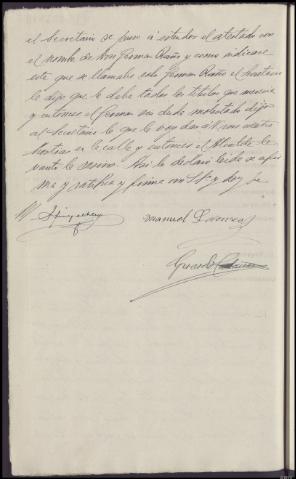 el Secretario se puso á estender el atestado con
el nombre de Don German Riaño y como indicase
este que se llamaba solo German Riaño el Secretario
le dijo que le daba todos los titulos que merecia
y entonces el German sin duda molestado dijo
al Secretario lo que le voy dar á V. son cuatro
hostias en la calle y entonces el Alcalde le
vanto la sesion. Asi lo declaró leido se afir
ma y ratifica y firma con S.Sª y doy fe
Manuel
Gerardo